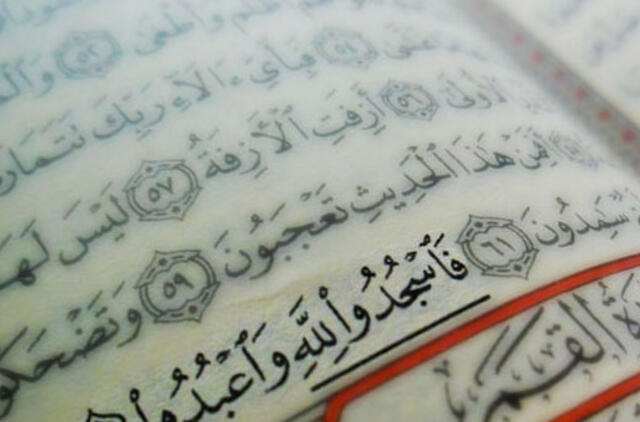 أَظْلَمَ وَأَطْغَىٰ ٥٢
غَشَّىٰ ٥٤ فَبِأَيِّ ءَالَآءِ رَبِّكَ تَتَمَارَ
ٱلْأُولَىٰٓ ٥٦ أَزِفَتِ ٱلْـَٔازِفَةُ ٥٧ لَيْسَ لَهَا
أَفَمِنْ هَـٰذَا ٱلْحَدِيثِ تَعْجَبُونَ ٥٩ وَتَضْحَكُو
سَـٰمِدُونَ ٦١ فَٱسْجُدُوا۟ لِلَّهِ وَٱعْبُدُوا۟
ةُ القَمَر